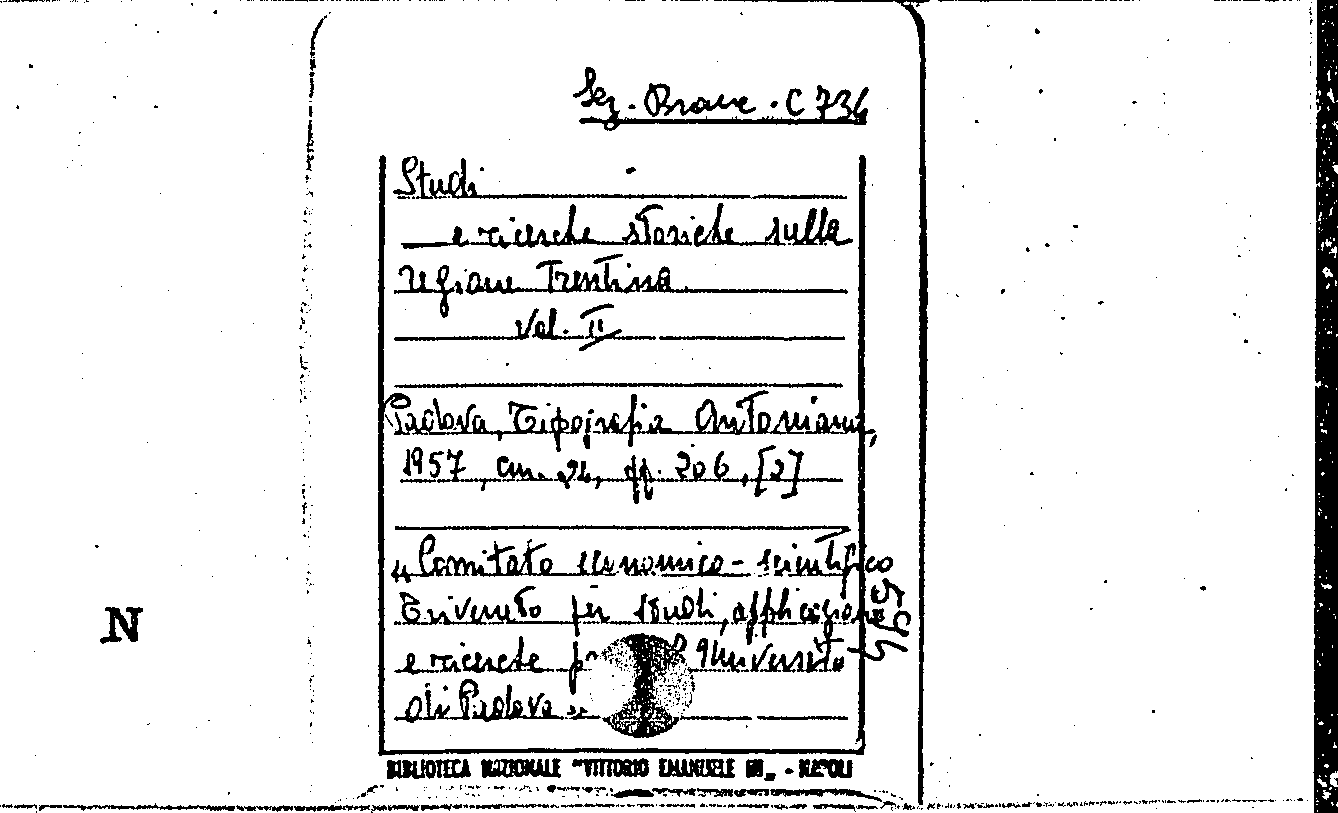 Sez. Brane. C 734
Studi
e ricerche storiche sulla
regione Trentina.
Vol. II
Padova, Tipografia Antoniana,
1957, cm. 24, pp. 206, [2]
"Comitato economico-scientifico
Triveneto per studi, applicazioni
e ricerche Università
di Padova"
N
BIBLIOTECA NAZIONALE "VITTORIO EMANUELE III" - NAPOLI